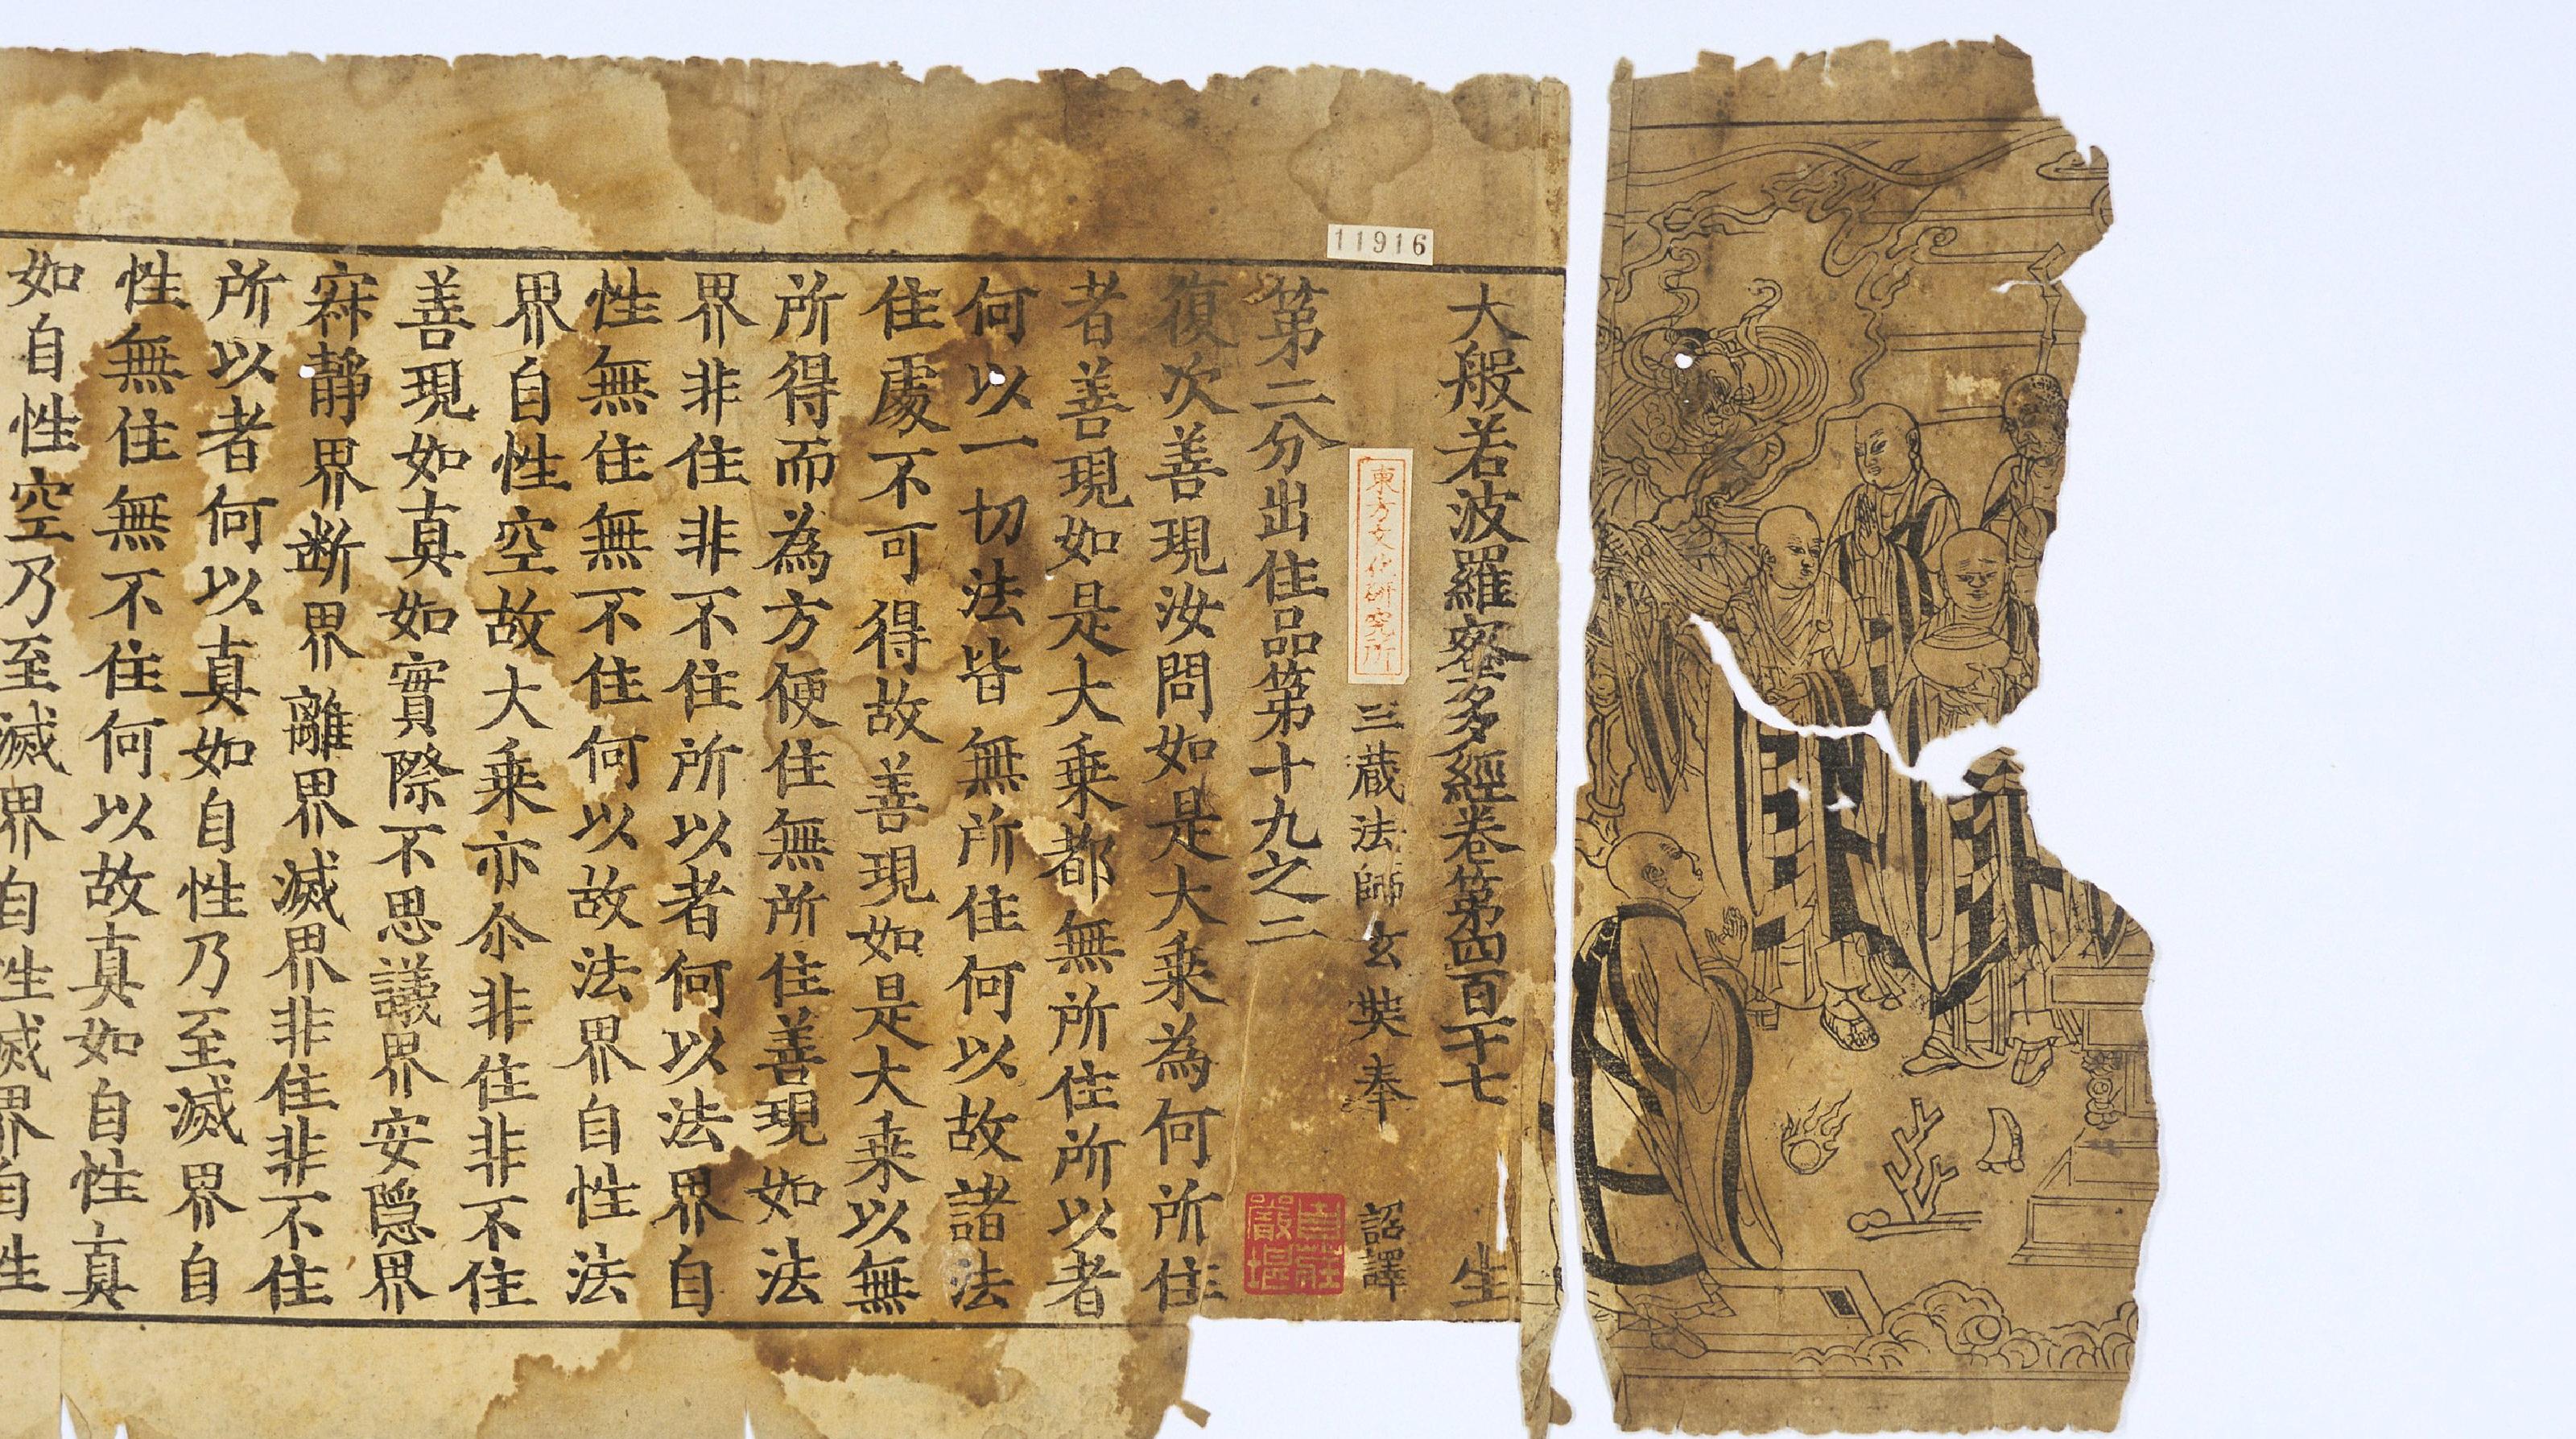 11916
大般若波羅蜜多經卷第四百一十七 生
東方文化研究所
三藏法師玄奘奉 詔譯
自莊嚴堪
第二分出住品第十九之二
復次善現汝問如是大乘為何所住
者善現如是大乘都無所住所以者
何以一切法皆無所住何以故諸法
住處不可得故善現如是大乘以無
所得而為方便住無所住善現如法
界非住非不住所以者何以法界自
性無住無不住何以故法界自性法
界自性空故大乘亦尒非住非不住
善現如真如實際不思議界安隱界
寂静界断界離界滅界非住非不住
所以者何以真如自性乃至滅界自
性無住無不住何以故真如自性真
如自性空乃至滅界自性滅界自性